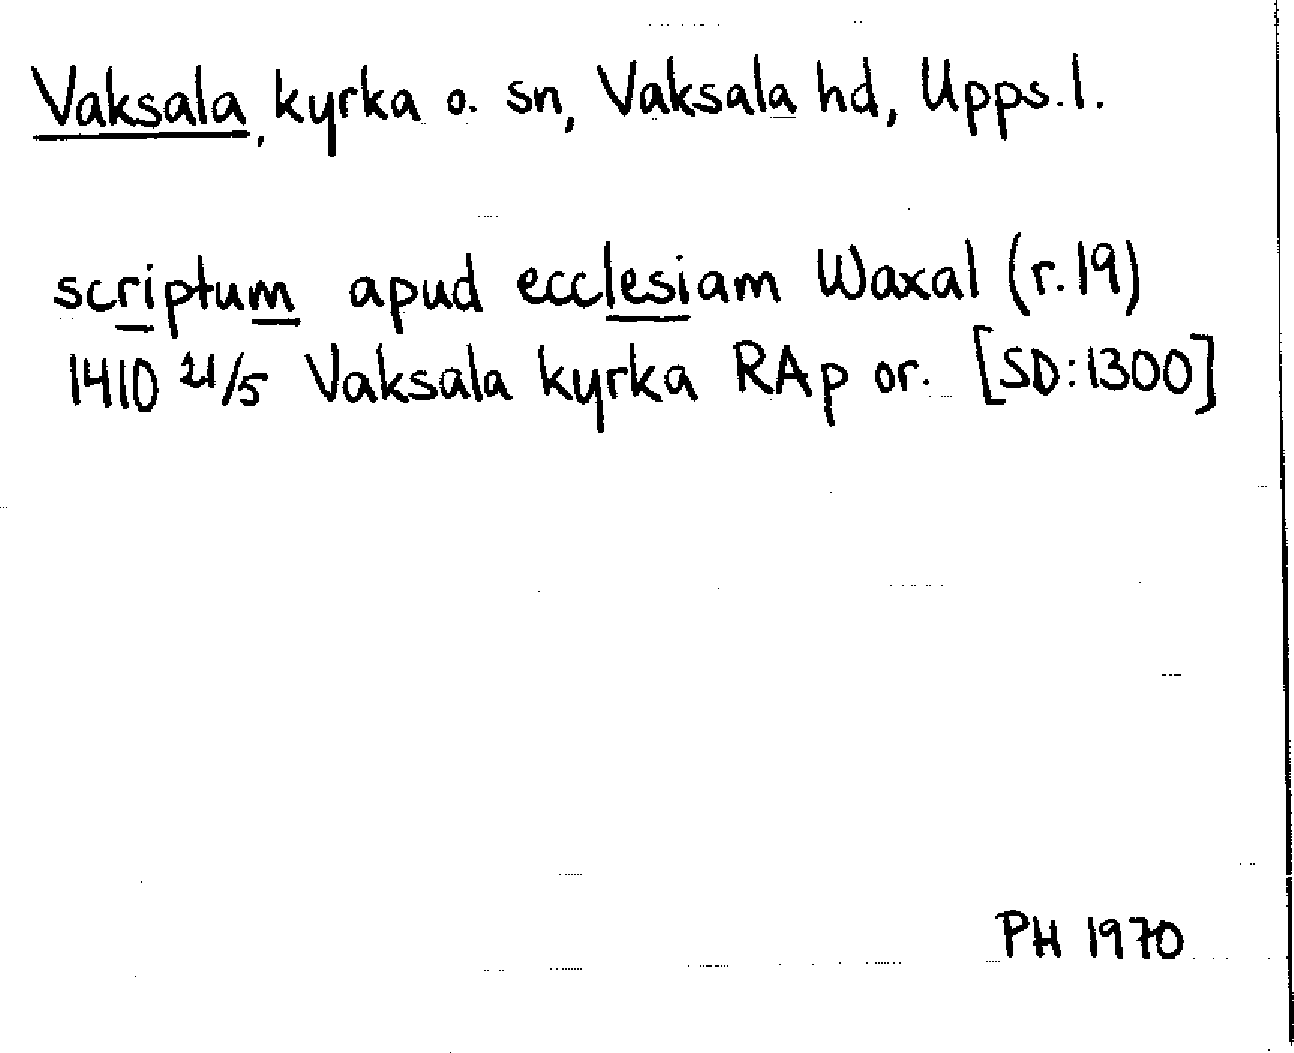 Vaksala, kyrka o. sn, Vaksala hd, Upps. l.
scriptum apud ecclesiam Waxal (r. 19)
1410 21/5 Vaksala kyrka RAp or. [SD: 1300]
PH 1970